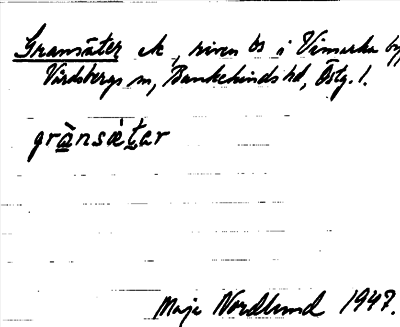 Gransäter ek, riven bs i Vimarka by,
Vårdsbergs sn, Bankekinds hd, Östg. l.
grànsǽtar
Maja Nordlund 1947.